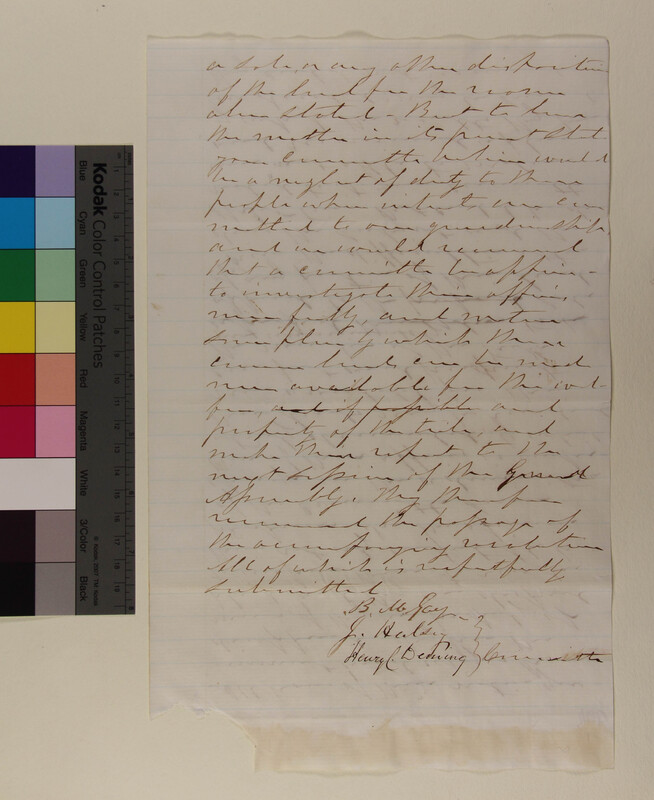 a sale, or any other disposition
of the land for the reasons
above stated. But to leave
the matter in its present state
your Committee believe would
be a neglect of duty to these
people whose interests are com
mitted to our guardianship
and we would recommend
that a committee be appoin-
to investigate their affairs
more fully and mature
some plan by which these
common lands can be made
more available for the wel-
fare, and if possible and
prosperity of the tribe, and
make their report to the
next session of the General
Assembly. They therefore
recommend the passage of
the accompanying resolution
All of which is respectfully
submitted
B. McGay
J. Halsey
Henry C. Deming } Committee
Kodak Color Control Patches
Blue Cyan Green Yellow Red Magenta White 3/Color Black